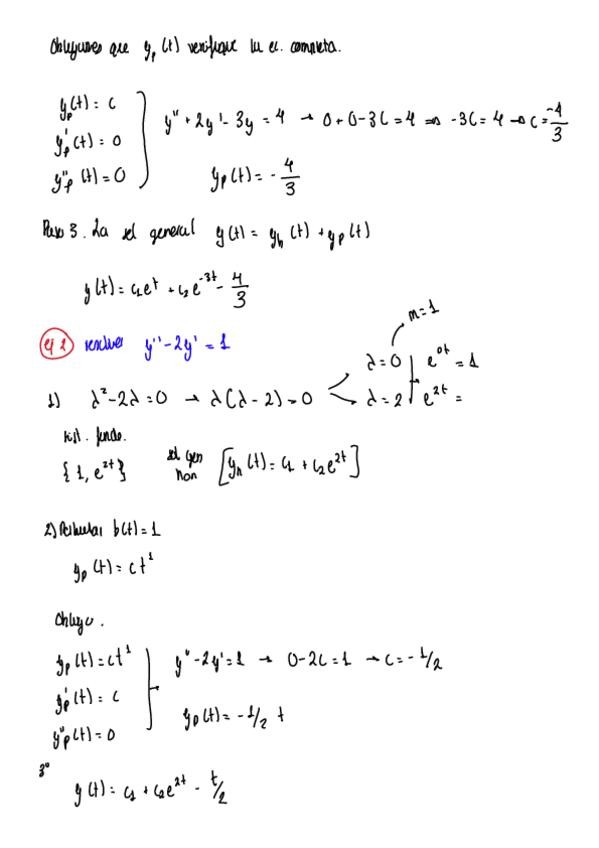 Obliguemos que yₚ(t) verifique la ec. completa.
yₚ(t) = c
y'ₚ(t) = 0
y''ₚ(t) = 0
y'' + 2y' - 3y = 4 → 0 + 0 - 3C = 4 ⇒ -3C = 4 → C = -4/3
yₚ(t) = - 4/3
Paso 3. La sol general y(t) = yₕ(t) + yₚ(t)
y(t) = c₁eᵗ + c₂e⁻³ᵗ - 4/3
ej 2 resolver y'' - 2y' = 1
m = 1
1) λ² - 2λ = 0 → λ(λ - 2) = 0
λ = 0 | e⁰ᵗ = 1
λ = 2 | e²ᵗ =
sist. funda.
{1, e²ᵗ}
sol gen hom [yₕ(t) = c₁ + c₂e²ᵗ]
2) Particular b(t) = 1
yₚ(t) = ct¹
Obligo.
yₚ(t) = ct¹
y'ₚ(t) = c
y''ₚ(t) = 0
y'' - 2y' = 1 → 0 - 2C = 1 → C = -1/2
yₚ(t) = -1/2 t
3º
y(t) = c₁ + c₂e²ᵗ - t/2